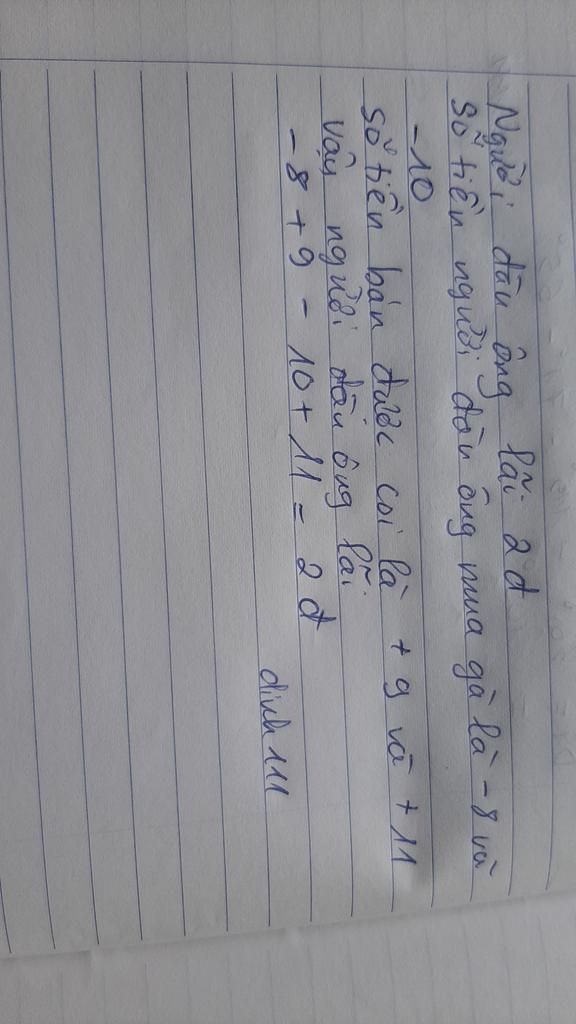 Người đàn ông lãi 2đ
Số tiền người đàn ông mua gà là - 8 và
-10
Số tiền bán được coi là + 9 và + 11
Vậy người đàn ông lãi
- 8 + 9 - 10 + 11 = 2 đ
dinh111